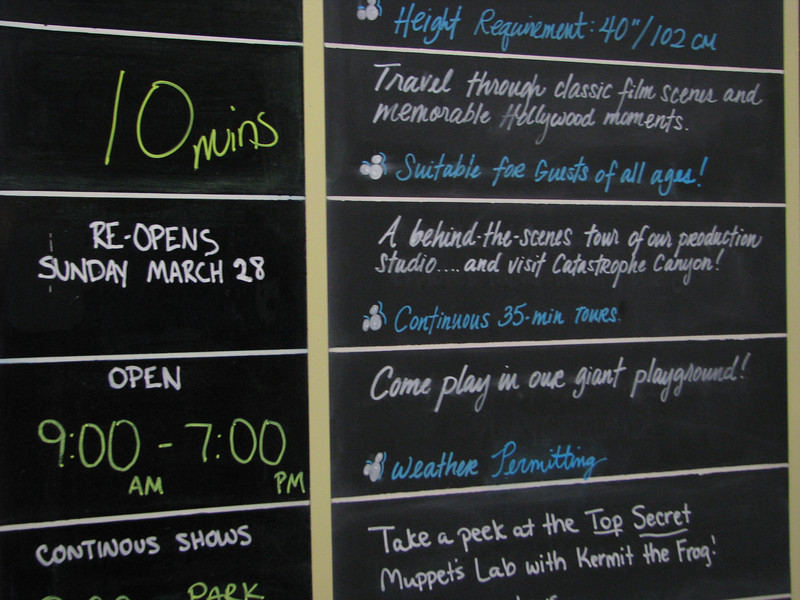 Height Requirement: 40"/102 cm
10 mins
Travel through classic film scenes and
memorable Hollywood moments.
Suitable for Guests of all ages!
RE-OPENS
SUNDAY MARCH 28
A behind-the-scenes tour of our production
studio....and visit Catastrophe Canyon!
Continuous 35-min tours.
OPEN
9:00 - 7:00
AM PM
Come play in our giant playground!
Weather Permitting
CONTINOUS SHOWS
PARK
Take a peek at the Top Secret
Muppet's Lab with Kermit the Frog!